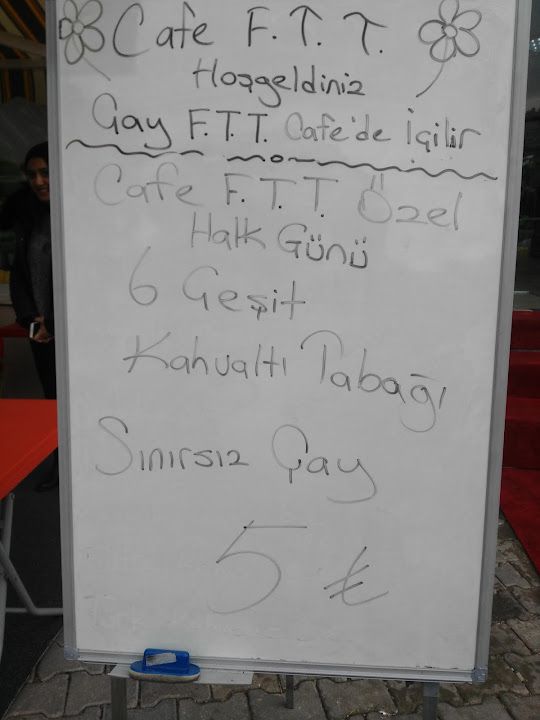 Cafe F.T.T.
Hoşgeldiniz
Çay F.T.T. Cafe'de İçilir
Cafe F.T.T. Özel
Halk Günü
6 Çeşit
Kahvaltı Tabağı
Sınırsız Çay
5 ₺